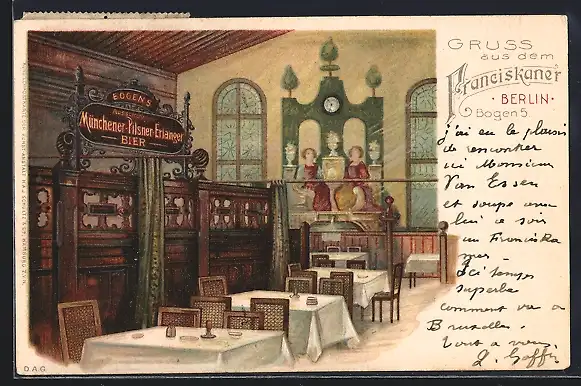 GRUSS
aus dem
Franciskaner
• BERLIN •
Bogen 5.
BOGEN 5
Münchener-Pilsner-Erlanger
BIER
j'ai eu le plaisir
de rencontrer
ici Monsieur
Van Essen
et soupe avec
lui ce soir
au Franciska
ner -
Ici temps
superbe
comment va a
Bruxelles.
Tout a vous
D.A.G.